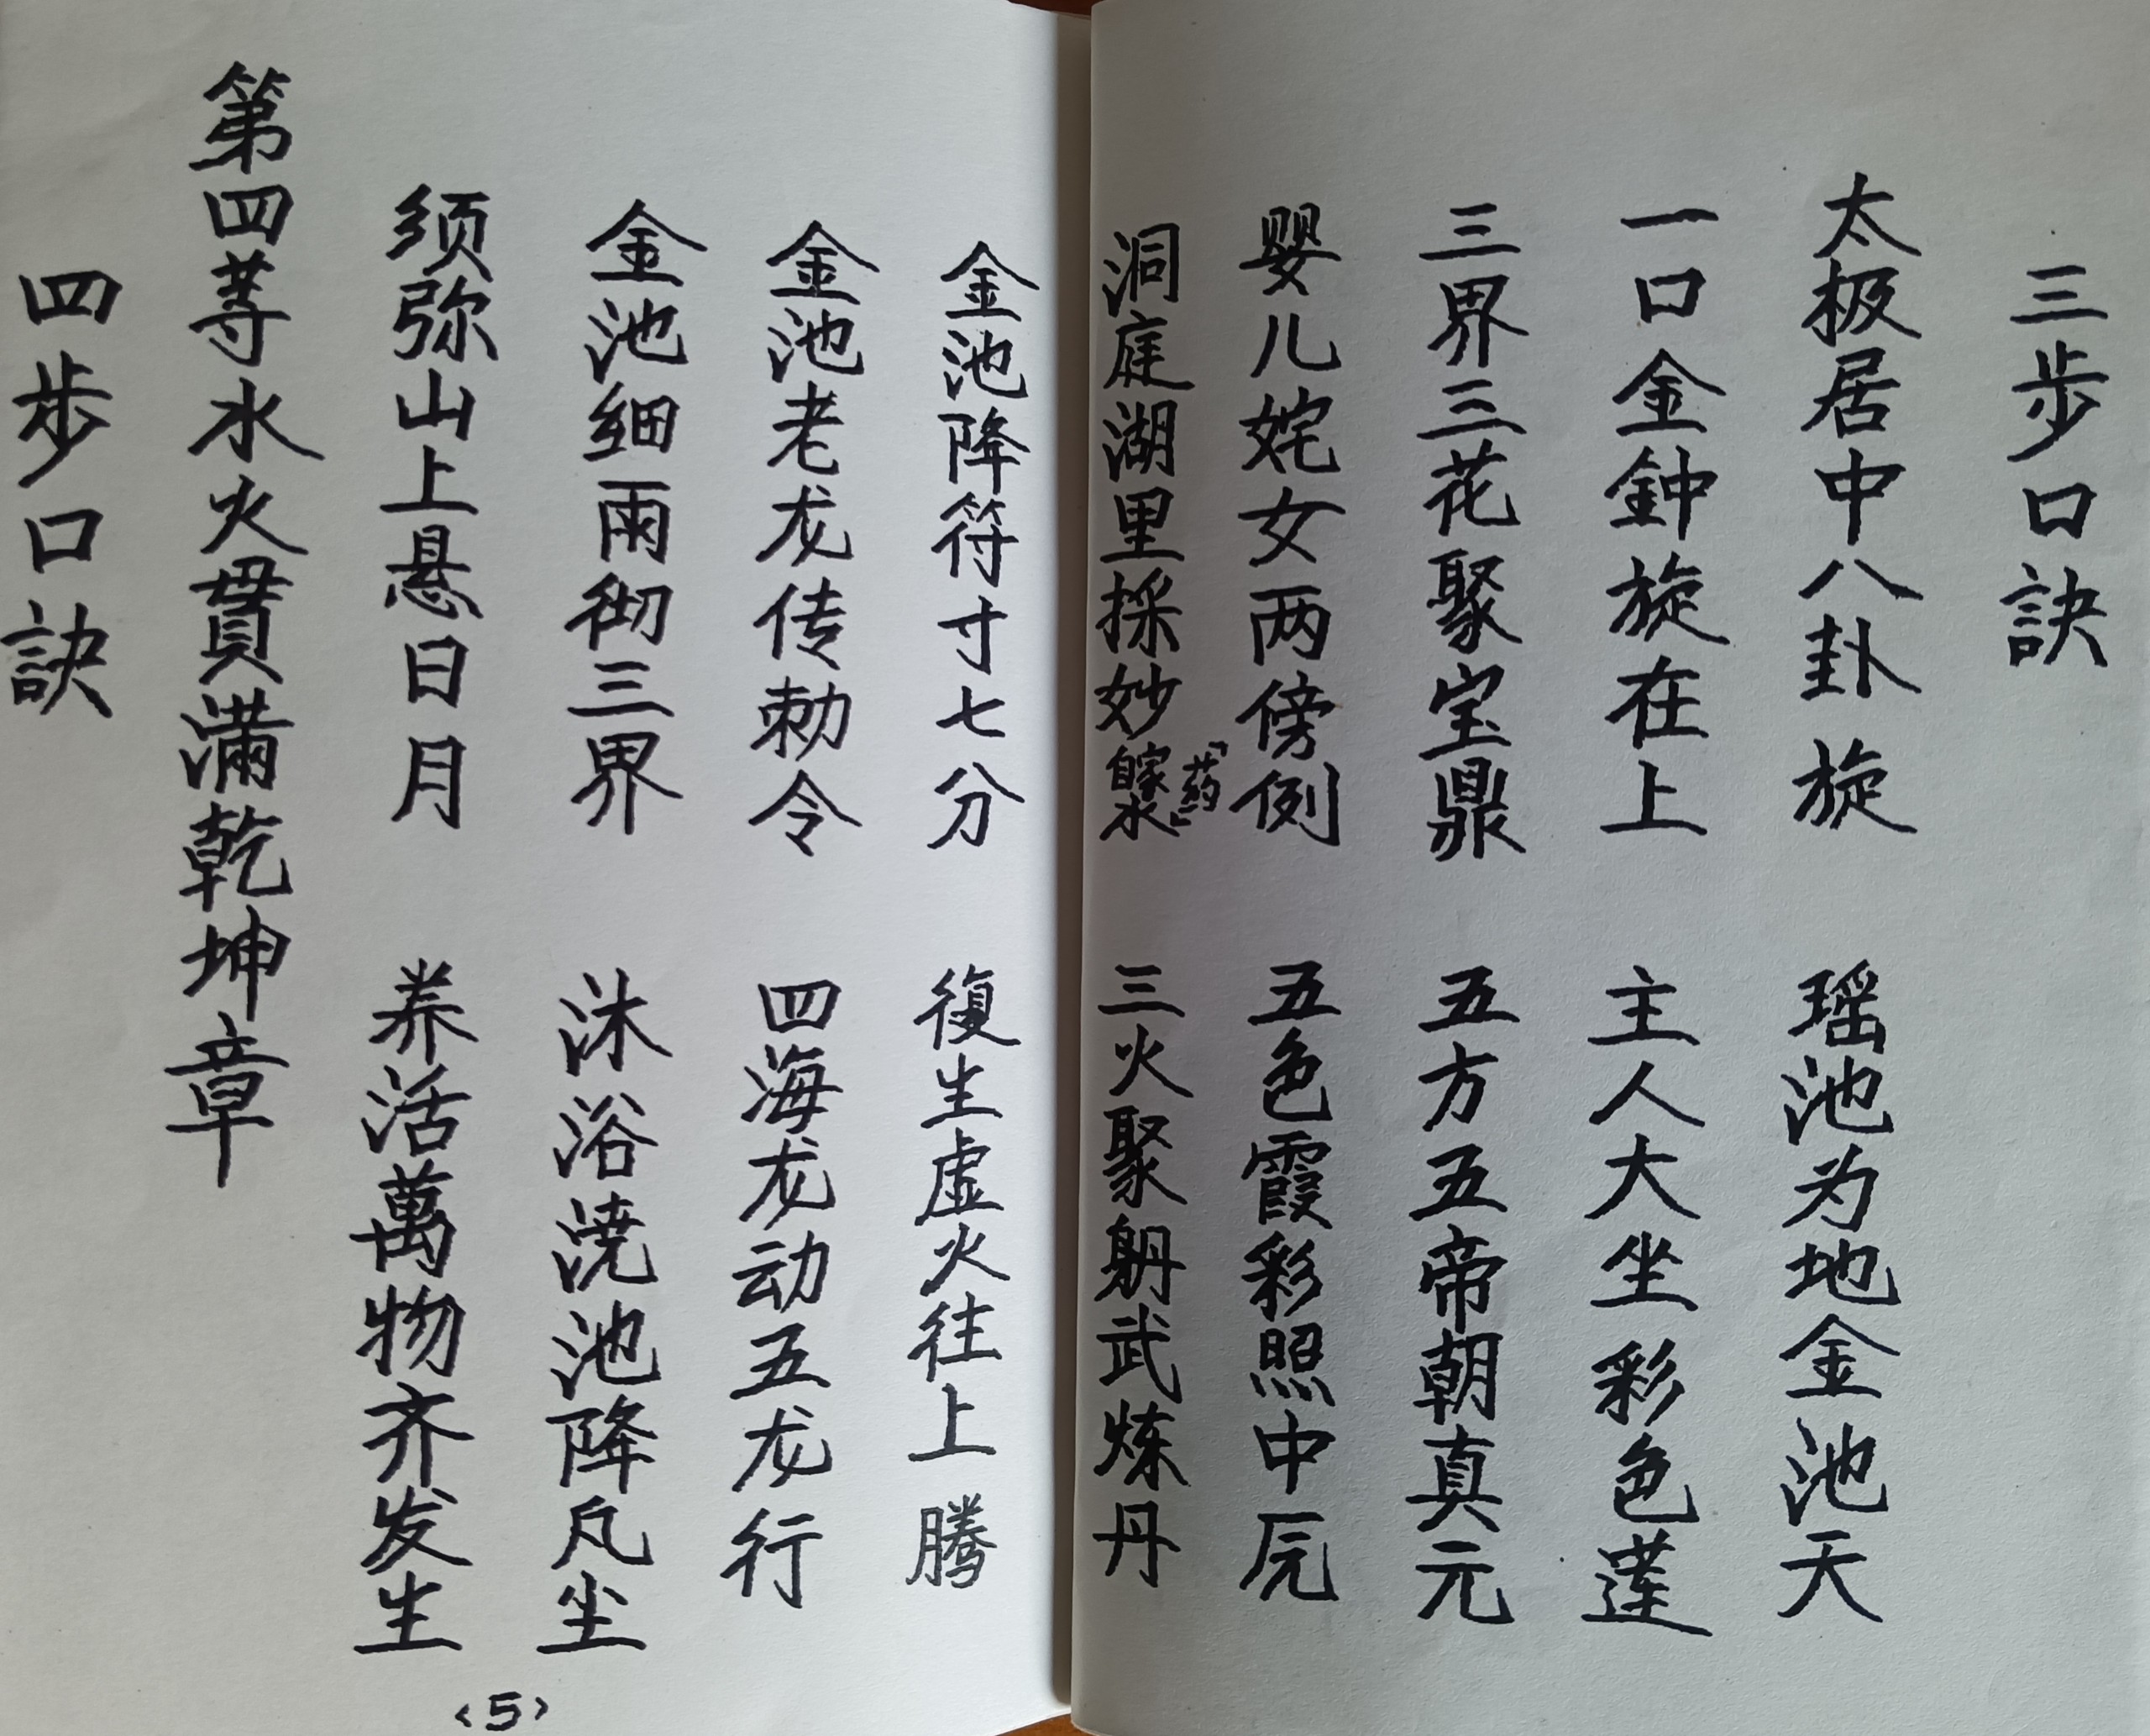 三步口訣
太极居中八卦旋 瑶池为地金池天
一口金鈡旋在上 主人大坐彩色莲
三界三花聚宝鼎 五方五帝朝真元
婴儿姹女两傍例 五色霞彩照中
洞庭湖里採妙
「药」
三火聚 武炼丹
金池降符寸七分 復生虚火往上腾
金池老龙传勅令 四海龙动五龙行
金池细雨彻三界 沐浴浇池降凡尘
须弥山上悬日月 养活萬物齐发生
第四等水火貫滿乾坤章
四步口訣
<5>